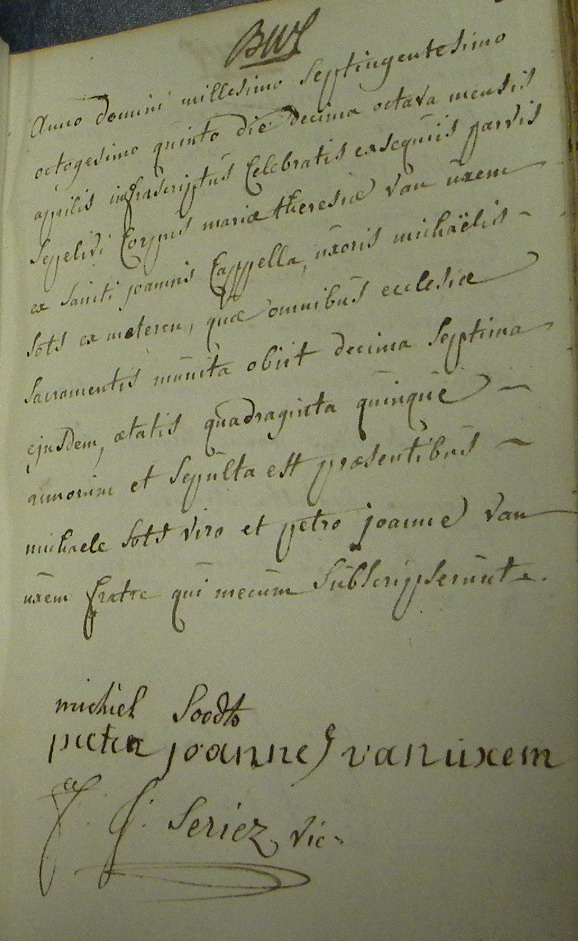 Anno domini millesimo Septingentesimo
octogesimo quinto die decima octava mensis
aprilis infrascriptus Celebratis exsequiis parvis
Sepelivi Corpus mariæ theresiæ van uxem
ex Sancti joannis Cappella, uxoris michaëlis -
Sots ex meteren, quæ omnibus ecclesiæ
Sacramentis munita obiit decima Septima
ejusdem, ætatis quadraginta quinque -
annorum et Sepulta est præsentibus -
michaele Sots viro et petro joanne van
uxem fratre qui mecum Subscripserunt.
michiel Soodts
pieter joannes van uxem
Seriez, vic-